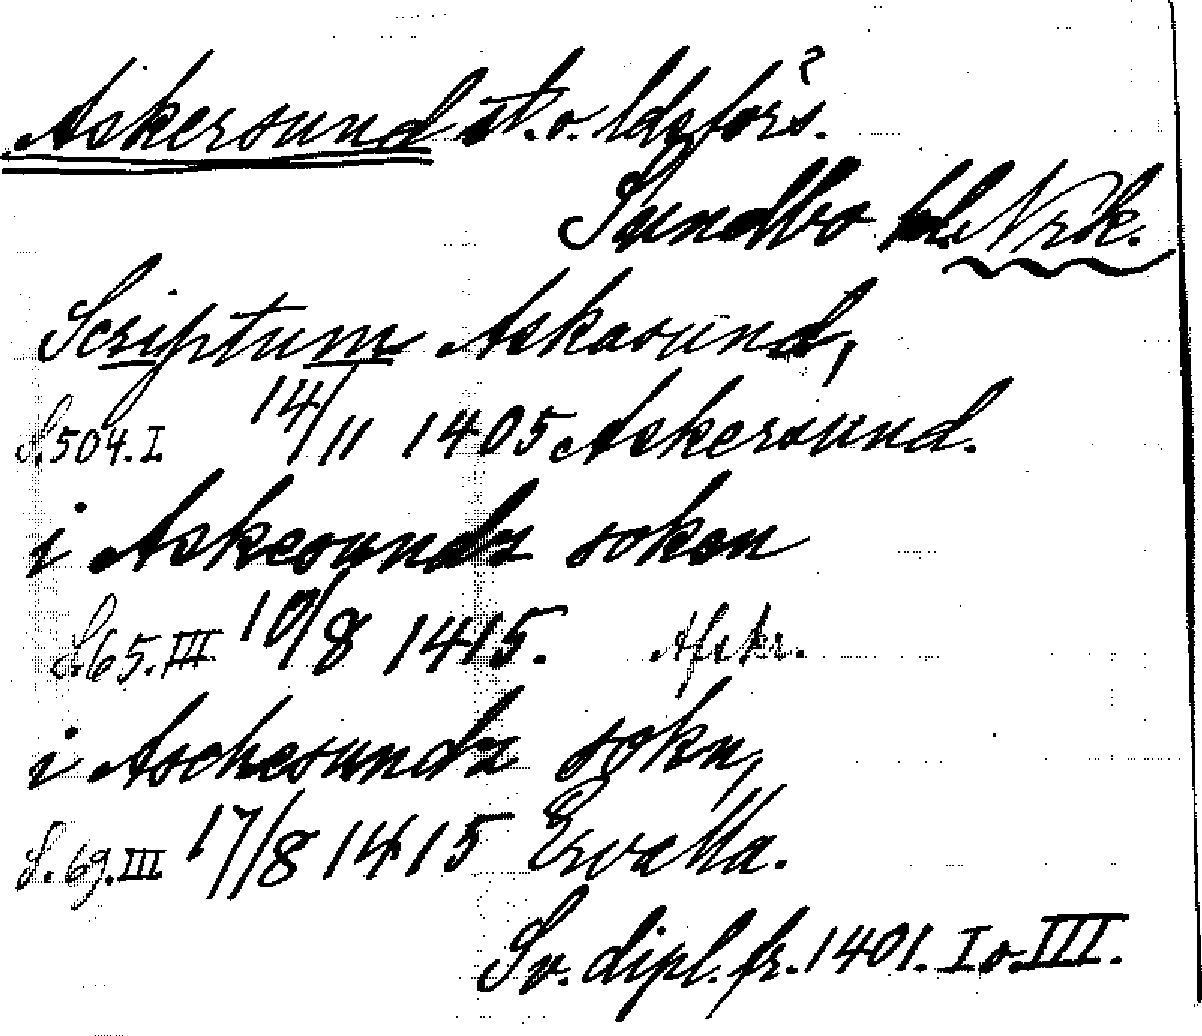 Askersund st. o. ldsförs.
Sundbo hd. Nrk.
Scriptum Askasund,
S. 504. I. 14/11 1405 Askersund.
i Askesundz soken
S. 65. III 10/8 1415. Afskr.
i Aschesundz sokn,
S. 69. III 17/8 1415 Ervalla.
Sv. dipl. fr. 1401. I o. III.